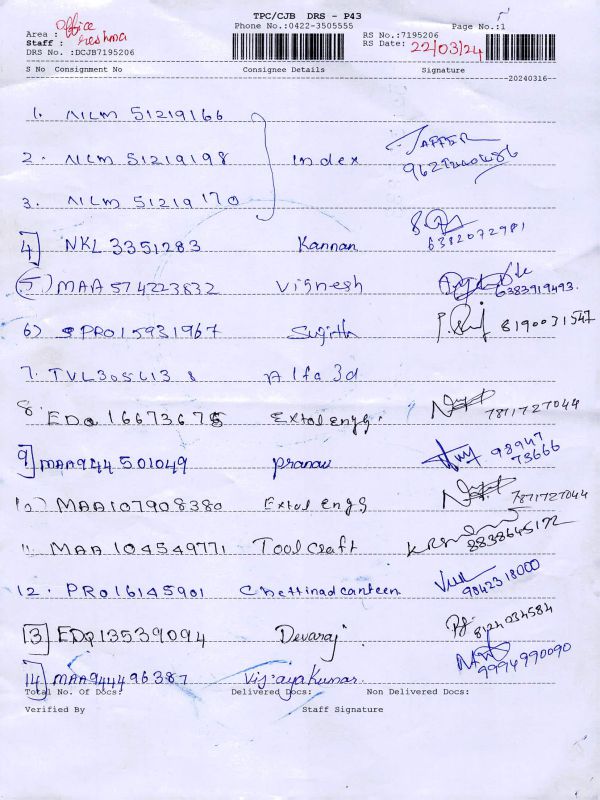 TPC/CJB DRS - P43
Phone No.:0422-3505555 Page No.:1
Area : office
Staff : reshma
RS No.:7195206
RS Date: 22/03/24
DRS No. :DCJB7195206
S No Consignment No Consignee Details Signature
20240316
1. NLM 51219166
2. NLM 51219198 Index
3. NLM 51219170
4] NKL 3351283 Kannan 6382072981
5.) MAA 574223832 Vignesh 6383919493.
6) PRO15931967 Sujitha 8190031547
7. TVL305613 8 Alfa 3d
8. EDQ 16673675 Extol engg. 7871727044
9] MAA944501049 Pranav 98947
73666
10) MAA107908380 Extol engg 7871727044
11. MAA 104549771 Tool Craft 8838645172
12. PRO16145901 Chettinad canteen 9842318000
13 EDQ13539094 Devaraj 8124034584
14] MAA944496387 Vijayakumar. 9994990090
Total No. Of Docs: Delivered Docs: Non Delivered Docs:
Verified By Staff Signature